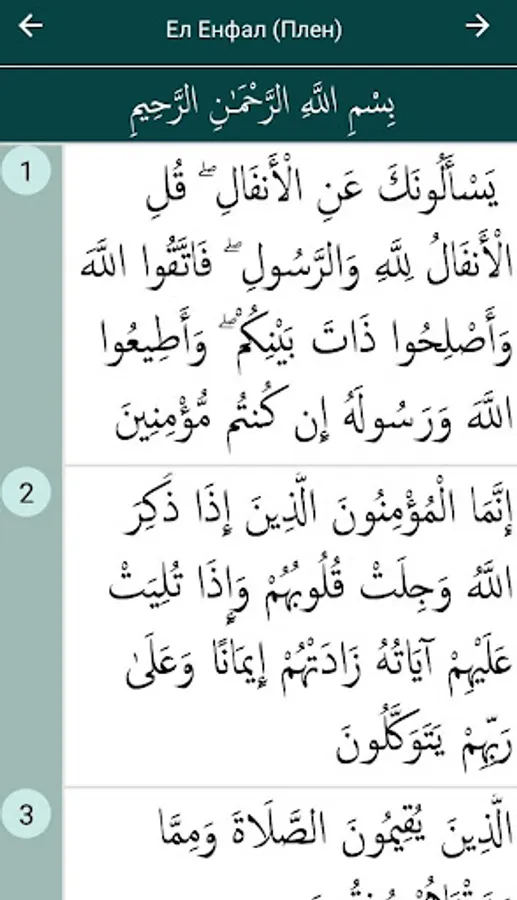 Ел Енфал (Плен)
بِسْمِ اللَّهِ الرَّحْمَٰنِ الرَّحِيمِ
1
يَسْأَلُونَكَ عَنِ الْأَنفَالِ ۖ قُلِ
الْأَنفَالُ لِلَّهِ وَالرَّسُولِ ۖ فَاتَّقُوا اللَّهَ
وَأَصْلِحُوا ذَاتَ بَيْنِكُمْ ۖ وَأَطِيعُوا
اللَّهَ وَرَسُولَهُ إِن كُنتُم مُّؤْمِنِينَ
2
إِنَّمَا الْمُؤْمِنُونَ الَّذِينَ إِذَا ذُكِرَ
اللَّهُ وَجِلَتْ قُلُوبُهُمْ وَإِذَا تُلِيَتْ
عَلَيْهِمْ آيَاتُهُ زَادَتْهُمْ إِيمَانًا وَعَلَىٰ
رَبِّهِمْ يَتَوَكَّلُونَ
3
الَّذِينَ يُقِيمُونَ الصَّلَاةَ وَمِمَّا